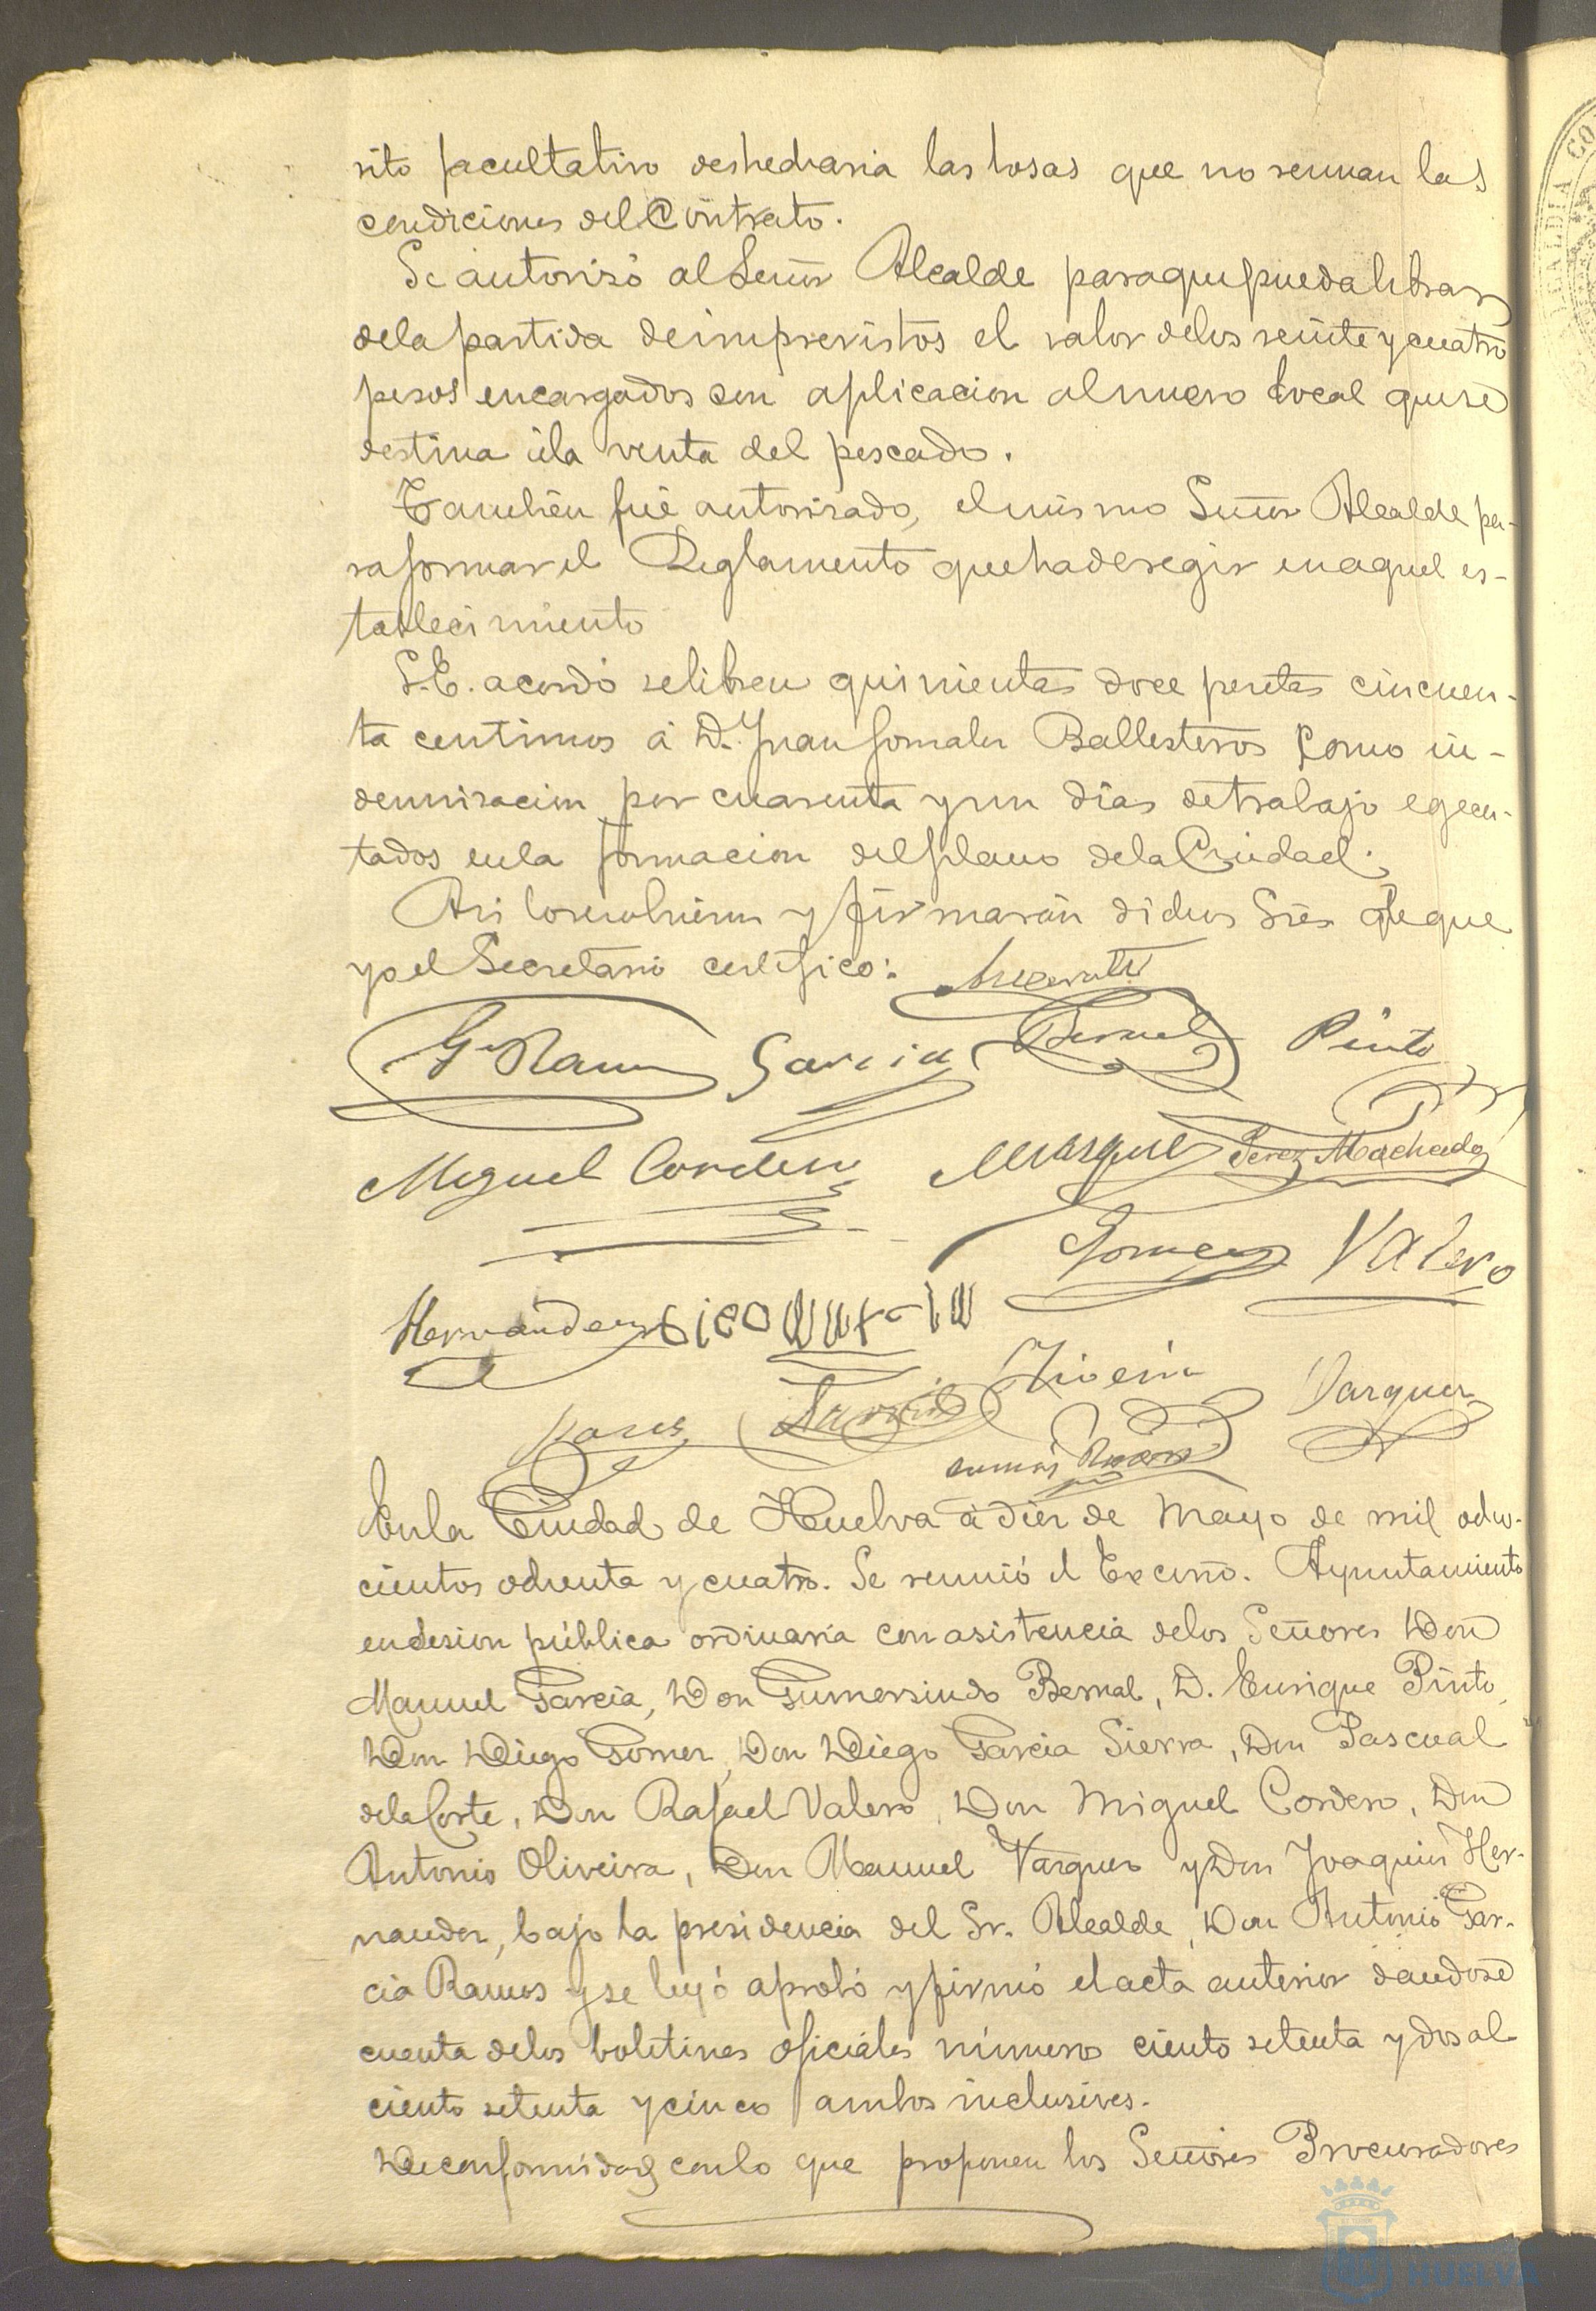 rito facultativo deshecharia las losas que no reunan las
condiciones del Contrato.
Se autorisó al Señor Alcalde para que pueda librar
de la partida de imprevistos el valor de los veinte y cuatro
pesos encargados con aplicacion al nuevo local que se
destina á la venta del pescado.
Tambien fué autorisado, el mismo Señor Alcalde pa-
ra formar el Reglamento que ha de regir en aquel es-
tablecimiento
S.E. acordó se libren quinientas doce pesetas cincuen-
ta centimos á D. Juan Gonzalez Ballesteros como in-
demnisacion por cuarenta y un dias de trabajo egecu-
tados en la formacion del plano de la Ciudad.
Asi lo resolvieron y firmarán dichos Sres de que
yo el Secretario certifico:
G. Ramos Garcia Bernal Pinto
Miguel Cordero Vasquez Perez Machado
Gomez Valero
Hernandez
Garcia Vazquez
En la Ciudad de Huelva á diez de Mayo de mil ocho-
cientos ochenta y cuatro. Se reunió el Excmo. Ayuntamiento
en sesion pública ordinaria con asistencia de los Señores Don
Manuel Garcia, Don Gumersindo Bernal, D. Enrique Pinto,
Don Diego Gomez, Don Diego Garcia Sierra, Don Pascual
de la Corte, Don Rafael Valero, Don Miguel Cordero, Don
Antonio Oliveira, Don Manuel Vazquez y Don Joaquin Her-
nandez, bajo la presidencia del Sr. Alcalde, Don Antonio Gar-
cia Ramos y se leyó aprobó y firmó el acta anterior dandose
cuenta de los boletines oficiales número ciento setenta y dos al
ciento setenta y cinco ambos inclusives.
De conformidad con lo que proponen los Señores Procuradores
ALCALDIA CO
HUELVA